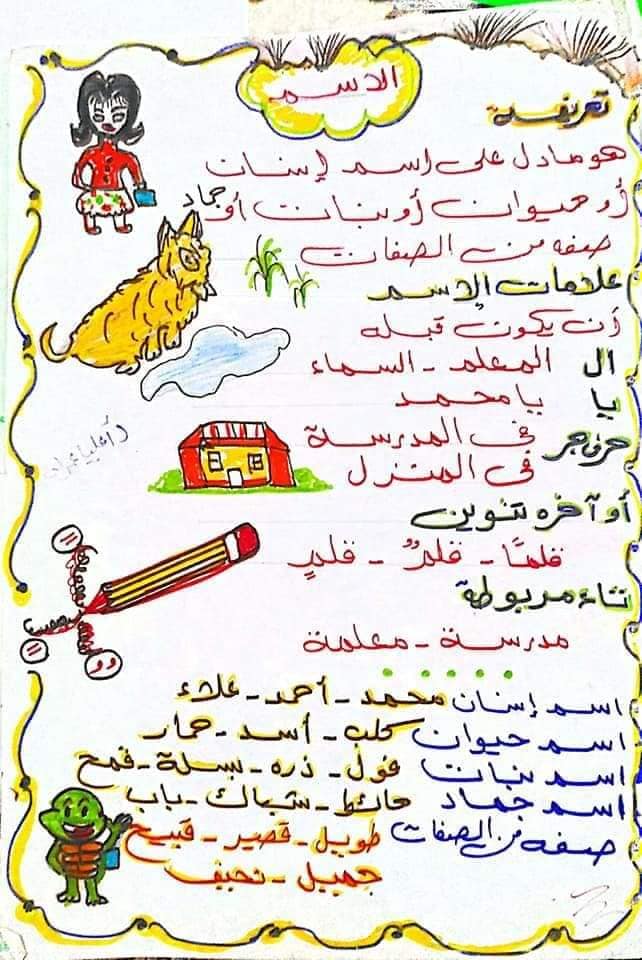 الاسم
تعريفه
هو ما دل على اسم إنسان
أو حيوان أو نبات أو جماد
صفه من الصفات
علامات الاسم
أن يكون قبله
ال المعلم - السماء
يا يا محمد
حرف جر فى المدرسة
فى المنزل
أو آخره تنوين
قلمًا - قلمٌ - قلمٍ
تاء مربوطة
مدرسة - معلمة
اسم إنسان محمد - أحمد - علاء
اسم حيوان كلب - أسد - حمار
اسم نبات فول - ذره - بسلة - قمح
اسم جماد حائط - شباك - باب
صفه من الصفات طويل - قصير - قبيح
جميل - نحيف